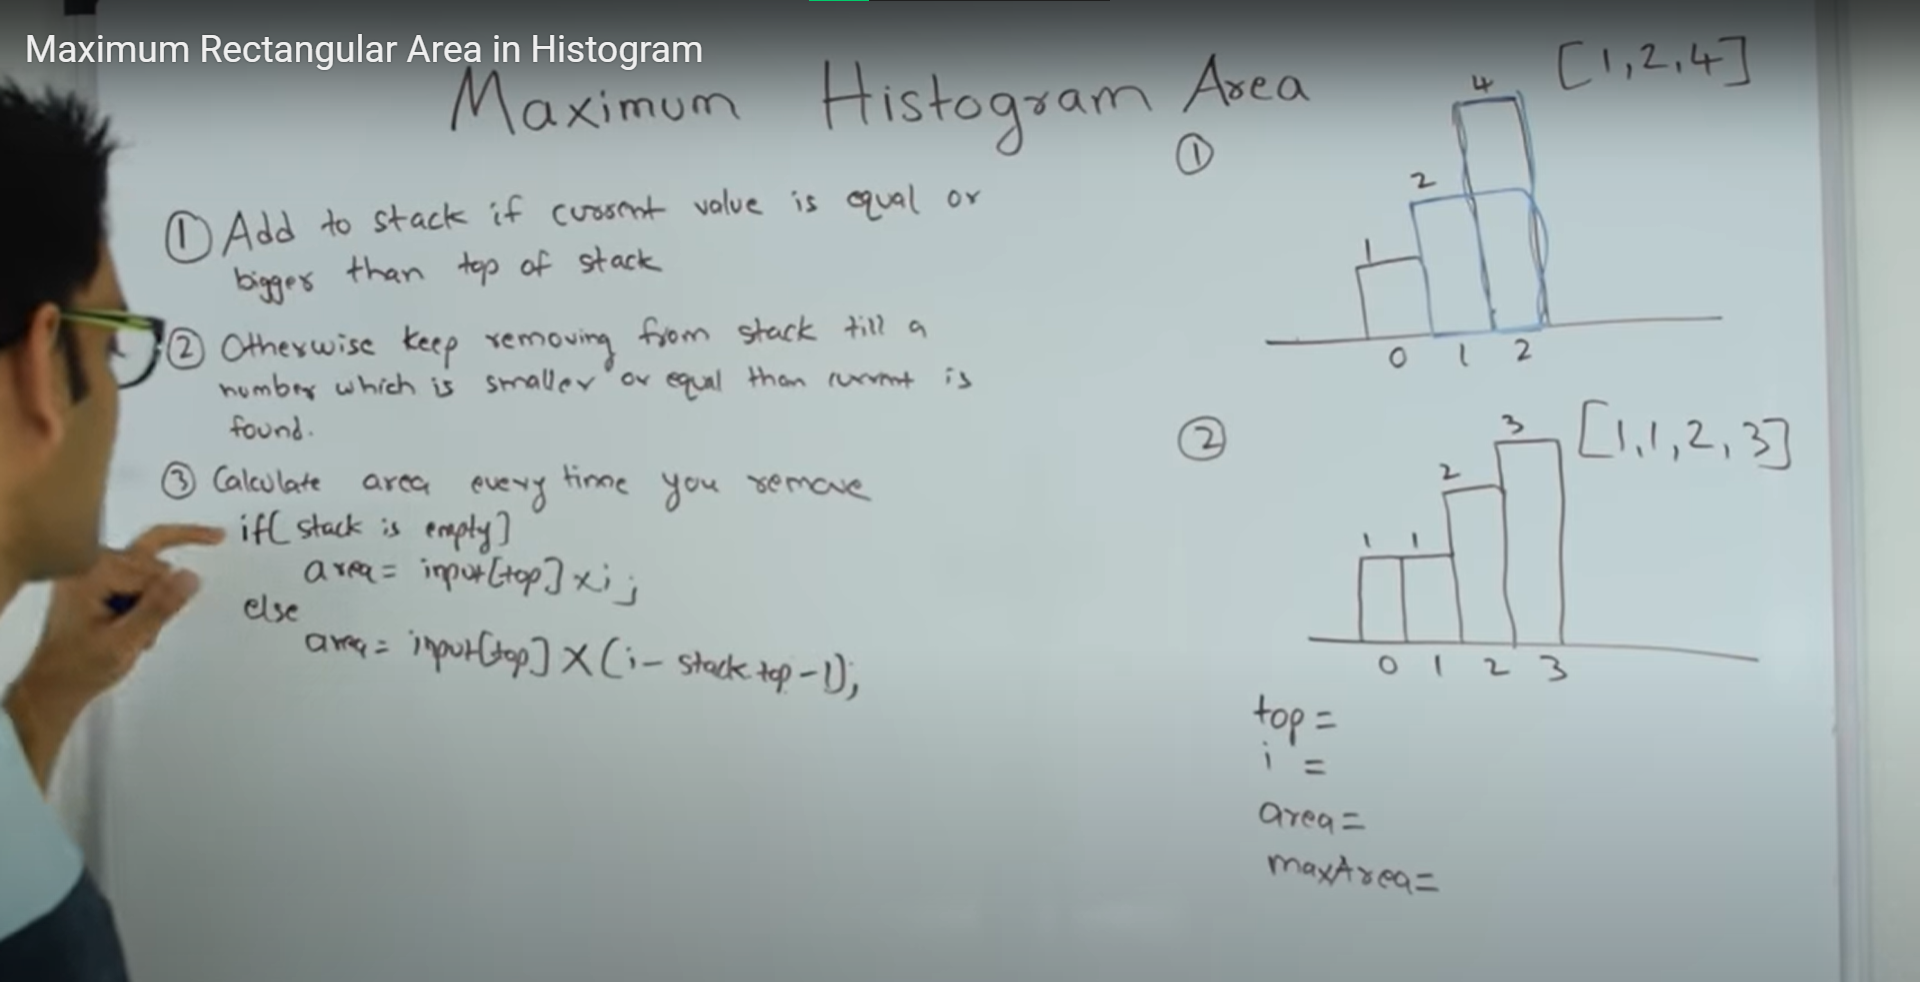 Maximum Rectangular Area in Histogram
Maximum Histogram Area
① Add to stack if current value is equal or
bigger than top of stack
② Otherwise keep removing from stack till a
number which is smaller or equal than current is
found.
③ Calculate area every time you remove
if( stack is empty)
area = input[top] x i;
else
area = input[top] X (i - stack top - 1);
① [1,2,4]
4
2
1
0 1 2
② [1,1,2,3]
3
2
1 1
0 1 2 3
top =
i =
area =
maxArea =